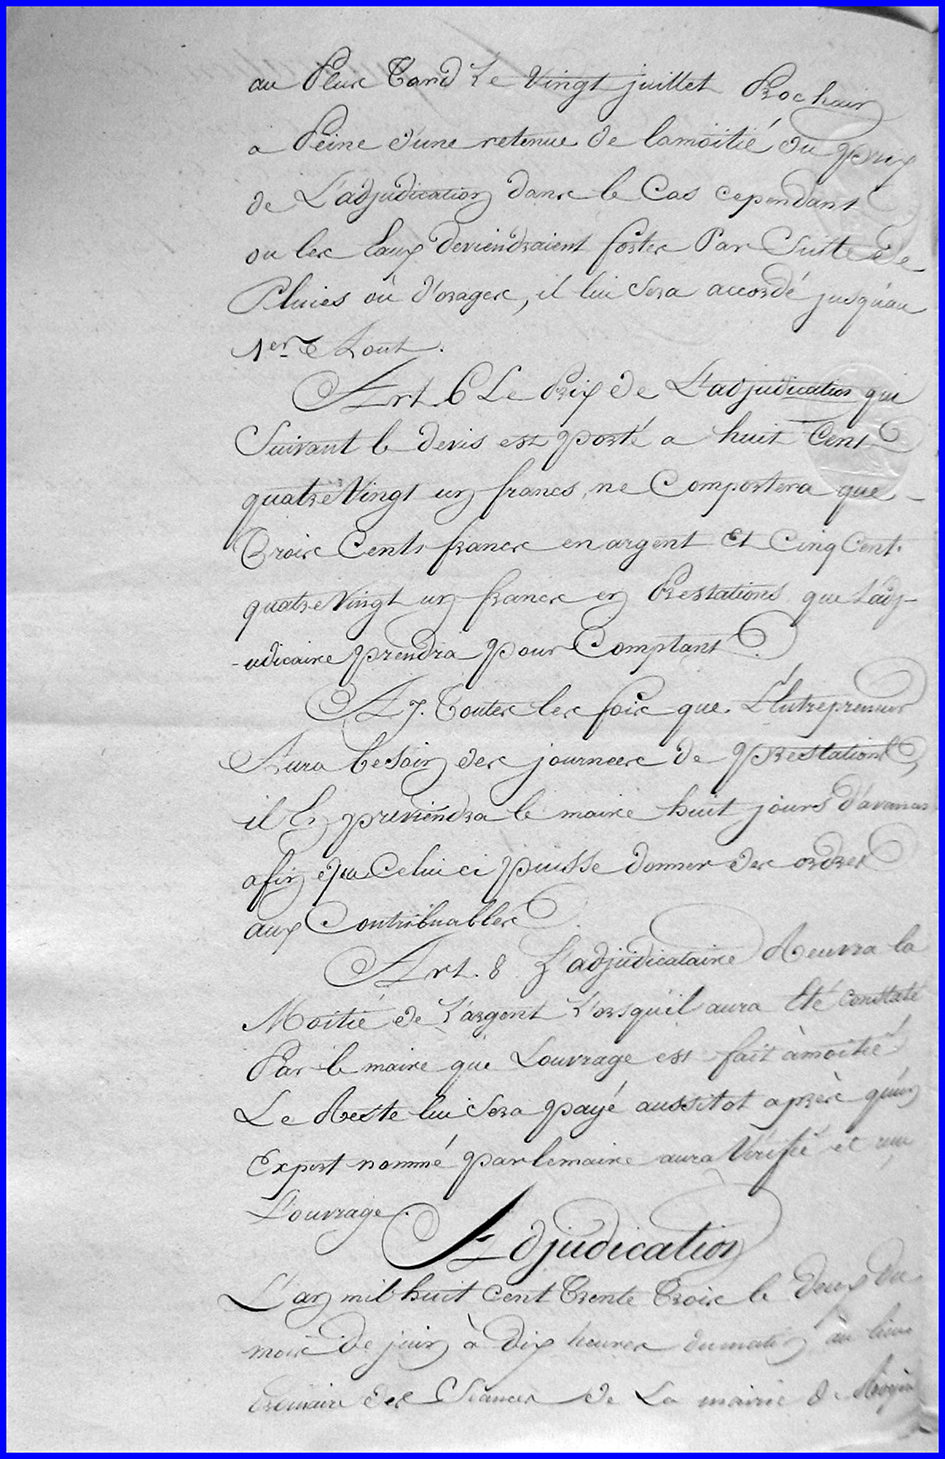 au Plus Tard Le Vingt juillet Prochain
a Peine d'une retenue de lamoitié du prix
de L'adjudication dans le Cas cependant
ou les Eaux deviendraient fortes Par Suite de
Pluies où d'orages, il lui Sera accordé jusqu'au
1er Aout.
Art. 6 Le Prix de L'adjudication qui
Suivant le devis est porté a huit Cent
quatre Vingt un francs, ne Comportera que
Trois Cents francs en argent Et Cinq Cent
quatre Vingt un francs en Prestations que Ladj-
-udicaire prendra pour Comptant
A 7. Toutes les fois que L'Entrepreneur
Aura besoin des journees de Prestations,
il En previendra le maire huit jours d'avance
afin que Celui ci puisse donner des ordres
aux Contribuables
Art. 8 L'adjudicataire Recevra la
Moitié de L'argent Lorsqu'il aura Eté constaté
Par le maire que Louvrage est fait àmoitié
Le Reste lui Sera payé aussitot après qu'un
Expert nommé par lemaire aura Vérifié et reçu
L'ouvrage.
Adjudication
L'an mil huit cent Trente Trois le Deux du
mois de juin à Dix heures dumatin au lieu
ordinaire des Séances de La mairie de